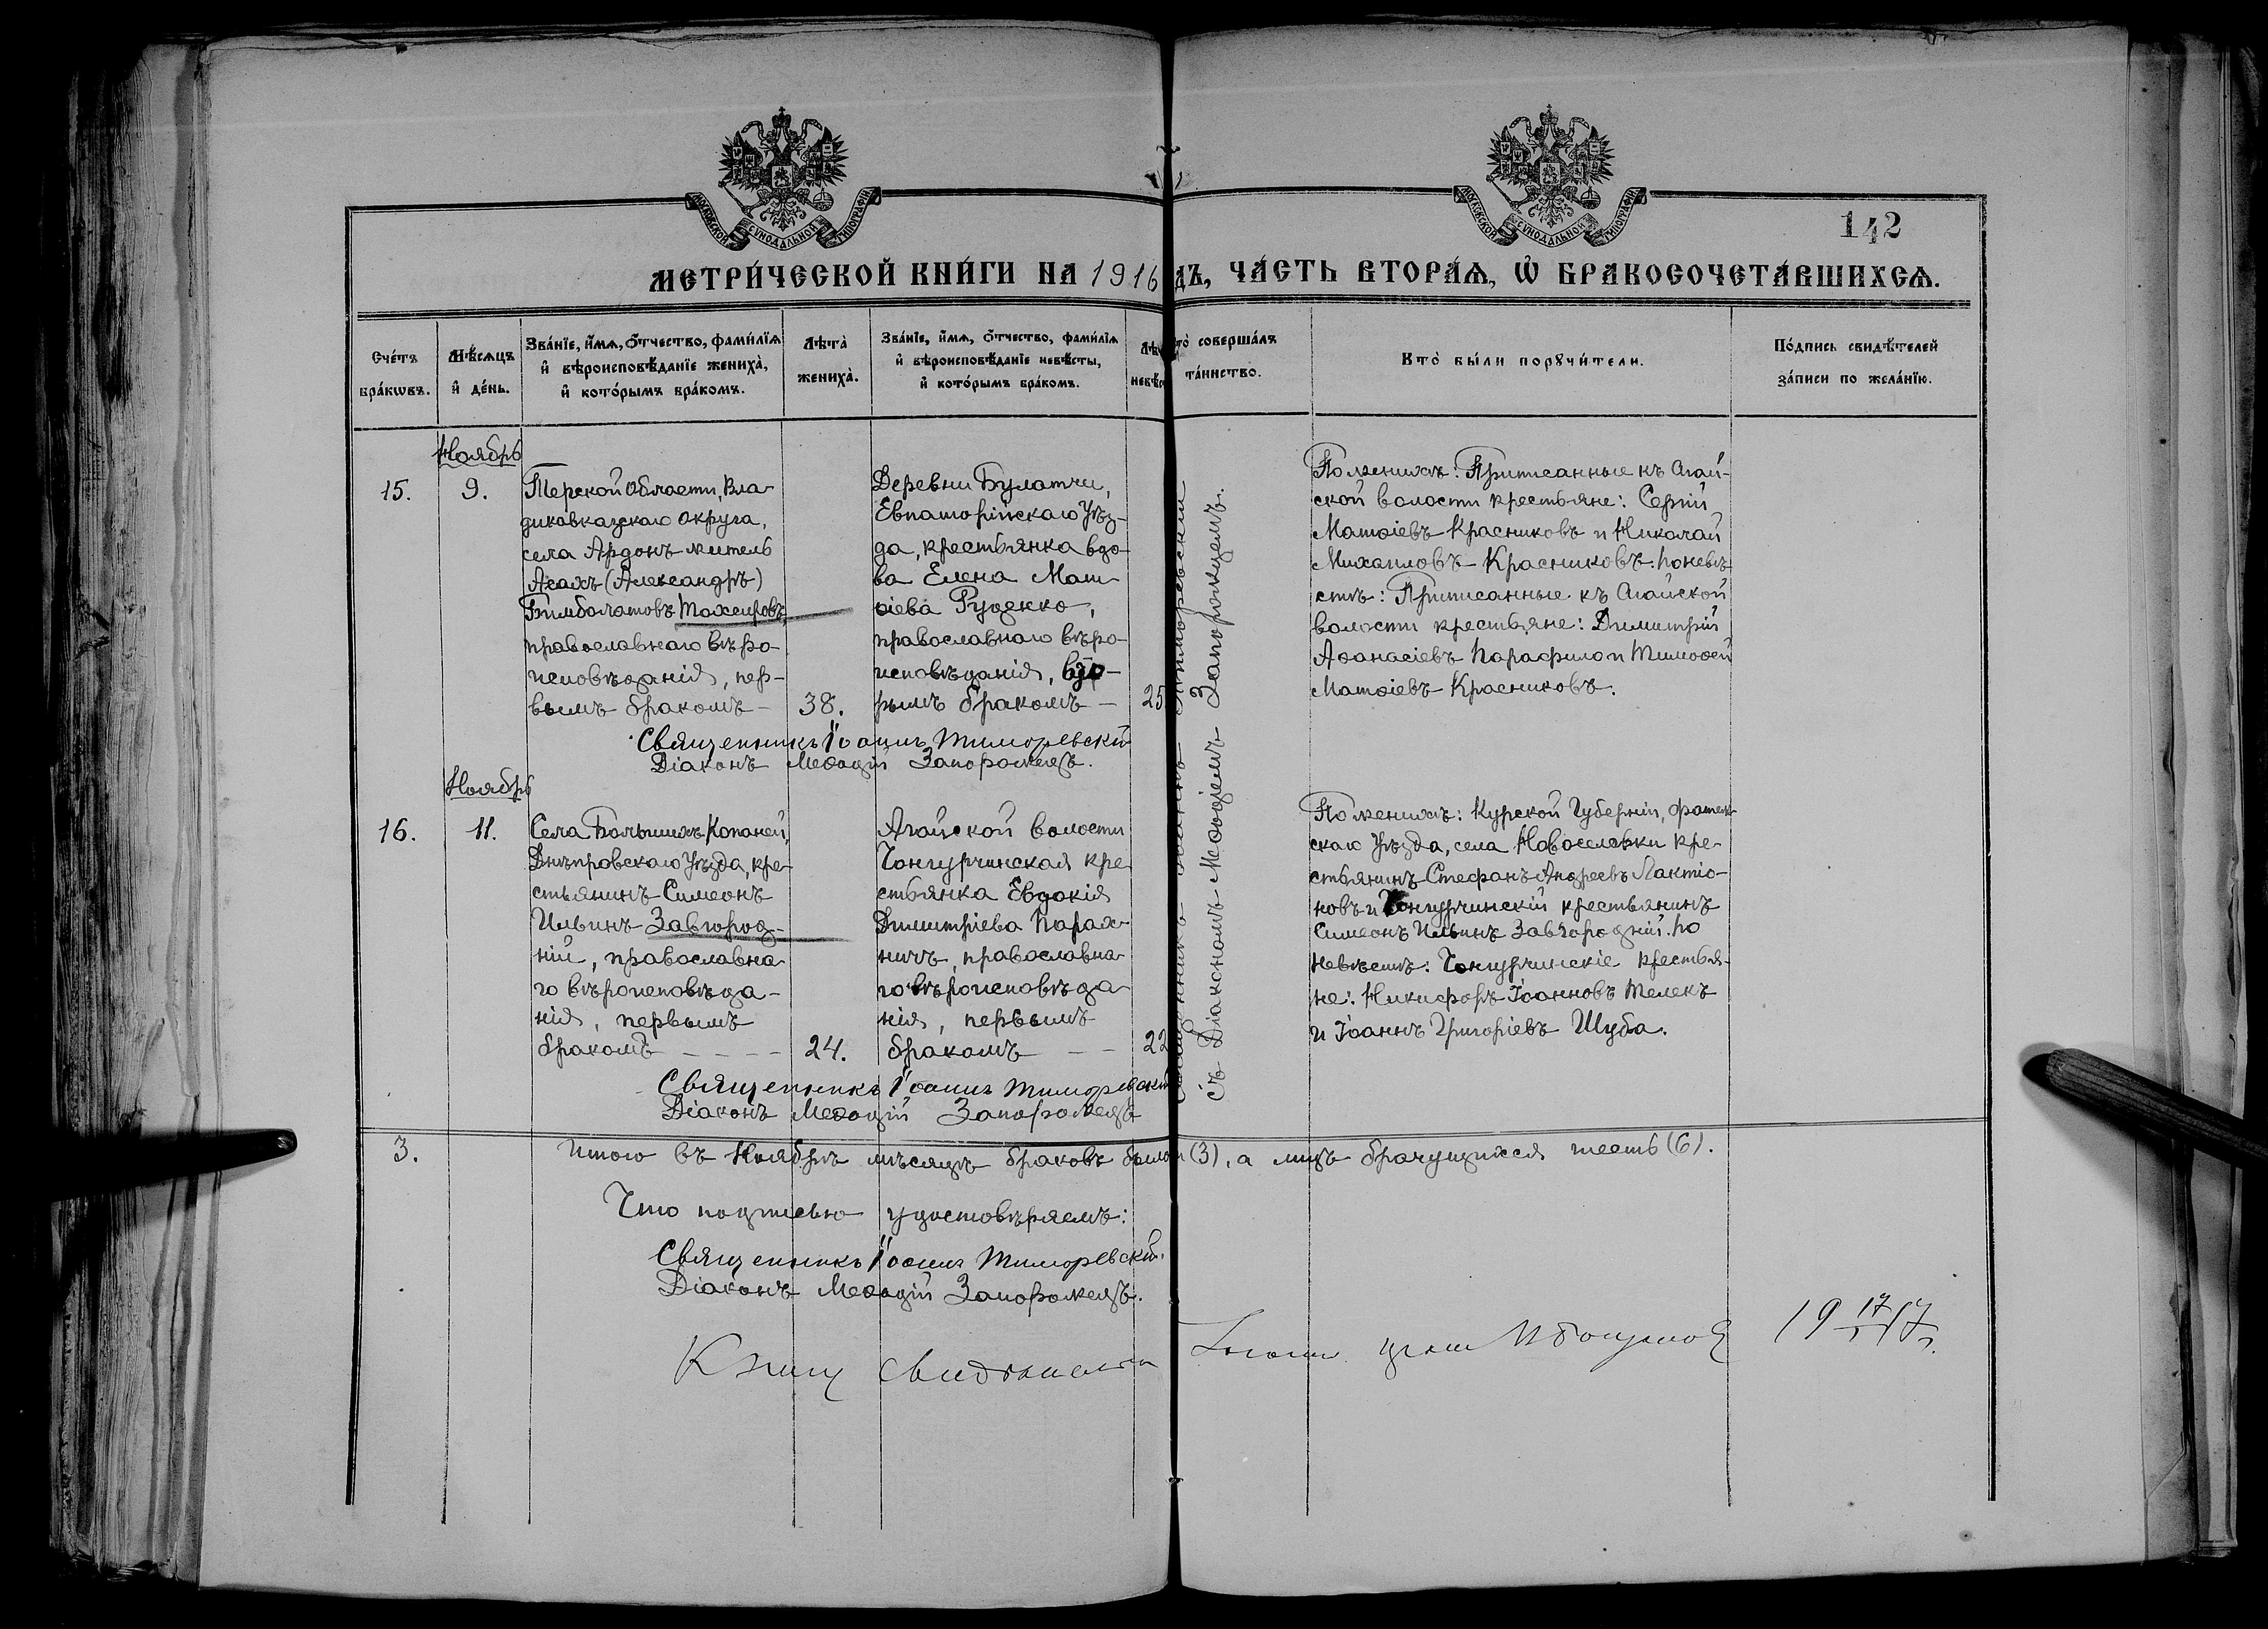 МОСКОВСКОЙ СѴНОДАЛЬНОЙ ТИПОГРАФІИ
МОСКОВСКОЙ СѴНОДАЛЬНОЙ ТИПОГРАФІИ
142
МЕТРИ́ЧЕСКОЙ КНИ́ГИ НА 1916 ДЪ, ЧА́СТЬ ВТОРА́Ѧ, Ѡ҆ БРАКОСОЧЕТА́ВШИХСѦ.
Сче́тъ
бра́кѡвъ.
Мѣ́сѧцъ
и҆ де́нь.
Зва́нїе, и҆́мѧ, ѻ҆́тчество, фами́лїѧ
и҆ вѣроисповѣ́данїе жениха̀,
и҆ кото́рымъ бра́комъ.
Лѣта̀
жениха̀.
Зва́нїе, и҆́мѧ, ѻ҆́тчество, фами́лїѧ
и҆ вѣроисповѣ́данїе невѣ́сты,
и҆ кото́рымъ бра́комъ.
Лѣ
невѣс
то̀ соверша́лъ
та́инство.
Кто̀ бы́ли порꙋчи́тели.
По́дпись свидѣ́телей
за́писи по жела́нїю.
Ноябрь
15.
9.
Терской Области, Вла-
дикавказскаго Округа,
села Ардонъ житель
Ахахъ (Александръ)
Бимболатовъ Тохсировъ,
православнаго вѣро-
исповѣданія, пер-
вымъ бракомъ –
38.
Деревни Булатчи,
Евпаторійскаго Уѣз-
да, крестьянка вдо-
ва Елена Мат-
ѳіева Руденко,
православнаго вѣро-
исповѣданія, вто-
рымъ бракомъ –
25
Священникъ Іоаннъ Тиморевскій
Діаконъ Меѳодій Запорожецъ.
съ Діакономъ Меѳодіемъ Запорожцемъ.
По женихѣ: Приписанные къ Агай-
ской волости крестьяне: Сергій
Матѳіевъ Красниковъ и Николай
Михаиловъ Красниковъ. По невѣ-
стѣ: Приписанные къ Агайской
волости крестьяне: Димитрій
Аѳанасіевъ Парафило и Тимоѳей
Матѳіевъ Красниковъ.
Ноябрь
16.
11.
Села Большихъ Копаней,
Днѣпровскаго Уѣзда, кре-
стьянинъ Симеонъ
Ильинъ Завгород-
ній, православна-
го вѣроисповѣда-
нія, первымъ
бракомъ – – – –
24.
Агайской волости
Чонгурчинская кре-
стьянка Евдокія
Димитріева Парах-
ничъ, православна-
го вѣроисповѣда-
нія, первымъ
бракомъ – –
22
Священникъ Іоаннъ Тиморевскій
Діаконъ Меѳодій Запорожецъ
По женихѣ: Курской Губерніи, Фатеж-
скаго Уѣзда, села Новоселовки кре-
стьянинъ Стефанъ Андреевъ Лактіо-
новъ и Чонгурчинскій крестьянинъ
Симеонъ Ильинъ Завгородній. По
невѣстѣ: Чонгурчинскіе крестья-
не: Никифоръ Іоанновъ Телекъ
и Іоаннъ Григоріевъ Шуба.
3.
Итого въ Ноябрѣ мѣсяцѣ браковъ было (3), а лицъ брачущихся шесть (6).
Что подписью удостовѣряемъ:
Священникъ Іоаннъ Тиморевскій.
Діаконъ Меѳодій Запорожецъ.
Книгу